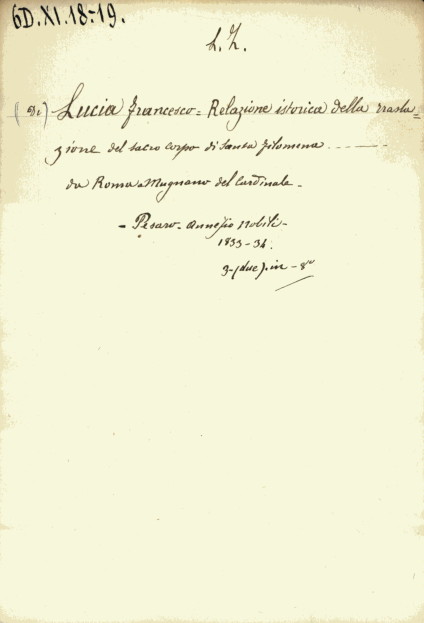 6D.XI.18-19.
L. Z.
(Di) Lucia Francesco = Relazione istorica della trasla=
zione del sacro corpo di Santa Filomena - - - - -
da Roma a Mugnano del Cardinale -
- Pesaro - Annesio Nobili -
1833-34.
3-(due) in - 8°